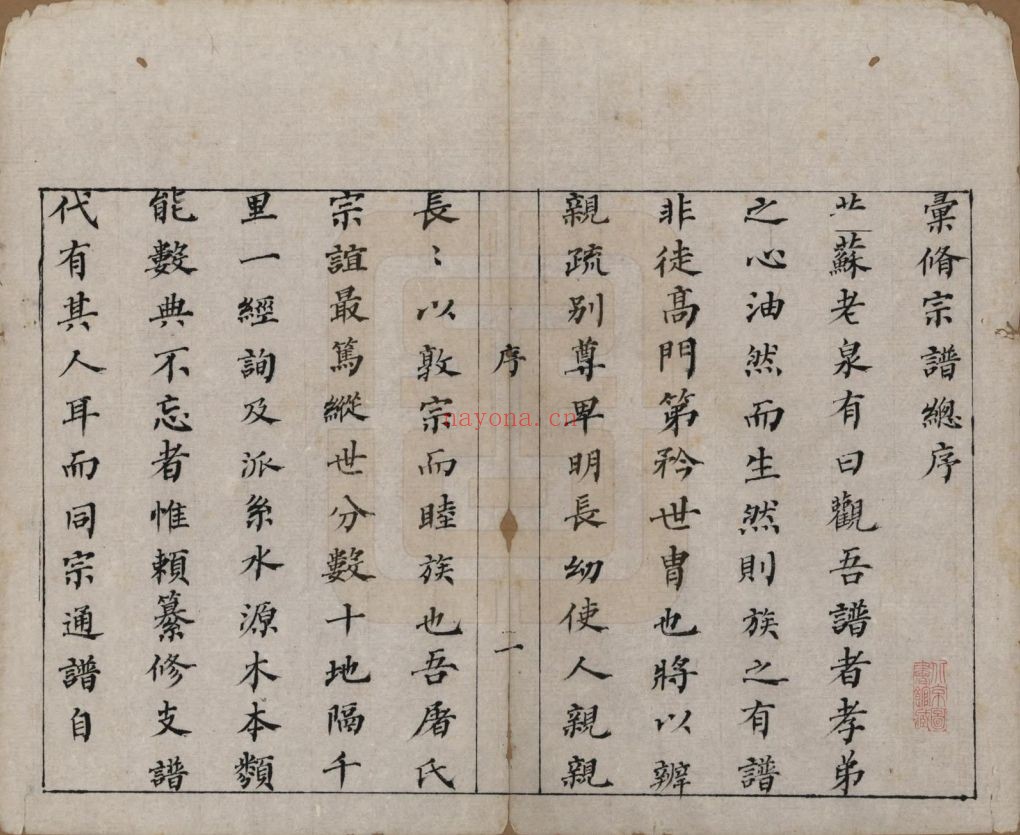 彙脩宗譜總序
昔蘇老泉有曰觀吾譜者孝弟
之心油然而生然則族之有譜
非徒高門第矜世胄也將以辨
親疏別尊卑明長幼使人親親
序
二
長〻以敦宗而睦族也吾屠氏
宗誼最篤縱世分數十地隔千
里一經詢及派系水源木本類
能數典不忘者惟賴纂修支譜
代有其人耳而同宗通譜自
nayona.cn